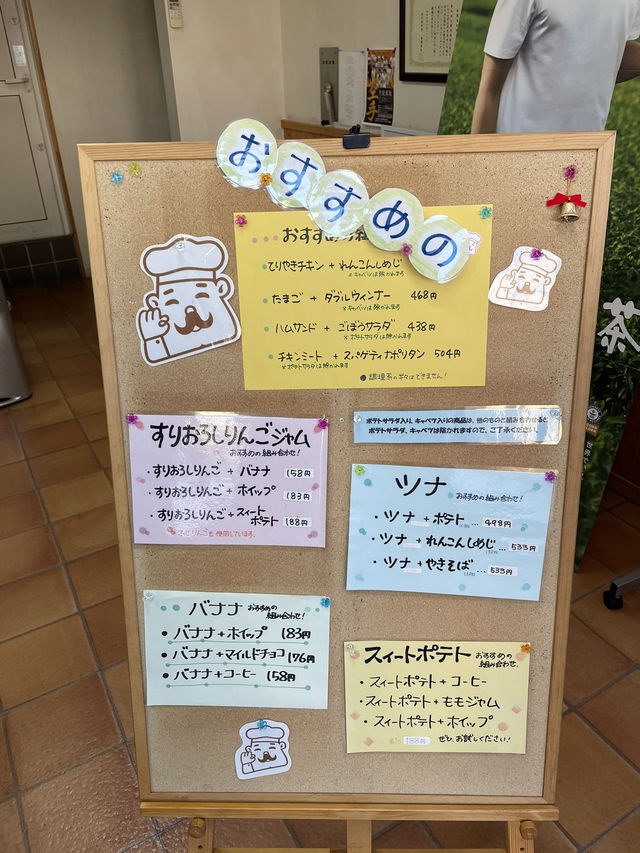 おすすめの
おすすめの組
てりやきチキン + れんこんしめじ
※キャベツは除かれます
たまご + ダブルウィンナー 468円
※キャベツは除かれます
ハムサンド + ごぼうサラダ 438円
※ポテトサラダは除かれます
チキンミート + スパゲティナポリタン 504円
※ポテトサラダは除かれます
●調理系の半々はできません!
ポテトサラダ入り、キャベツ入りの商品は、他のものと組み合わせると
ポテトサラダ、キャベツは除かれますので、ご了承ください。
すりおろしりんごジャム
おすすめの組み合わせ!
・すりおろしりんご + バナナ 158円
・すりおろしりんご + ホイップ 183円
・すりおろしりんご + スィートポテト 188円
りんごも使用しています。
ツナ おすすめの組み合わせ!
・ツナ + ポテト … 498円
・ツナ + れんこんしめじ … 535円
・ツナ + やきそば … 535円
バナナ おすすめの組み合わせ!
・バナナ + ホイップ 183円
・バナナ + マイルドチョコ 176円
・バナナ + コーヒー 158円
スィートポテト おすすめの組み合わせ。
・スィートポテト + コーヒー
・スィートポテト + ももジャム
・スィートポテト + ホイップ
188円 ぜひ、お試しください!
茶